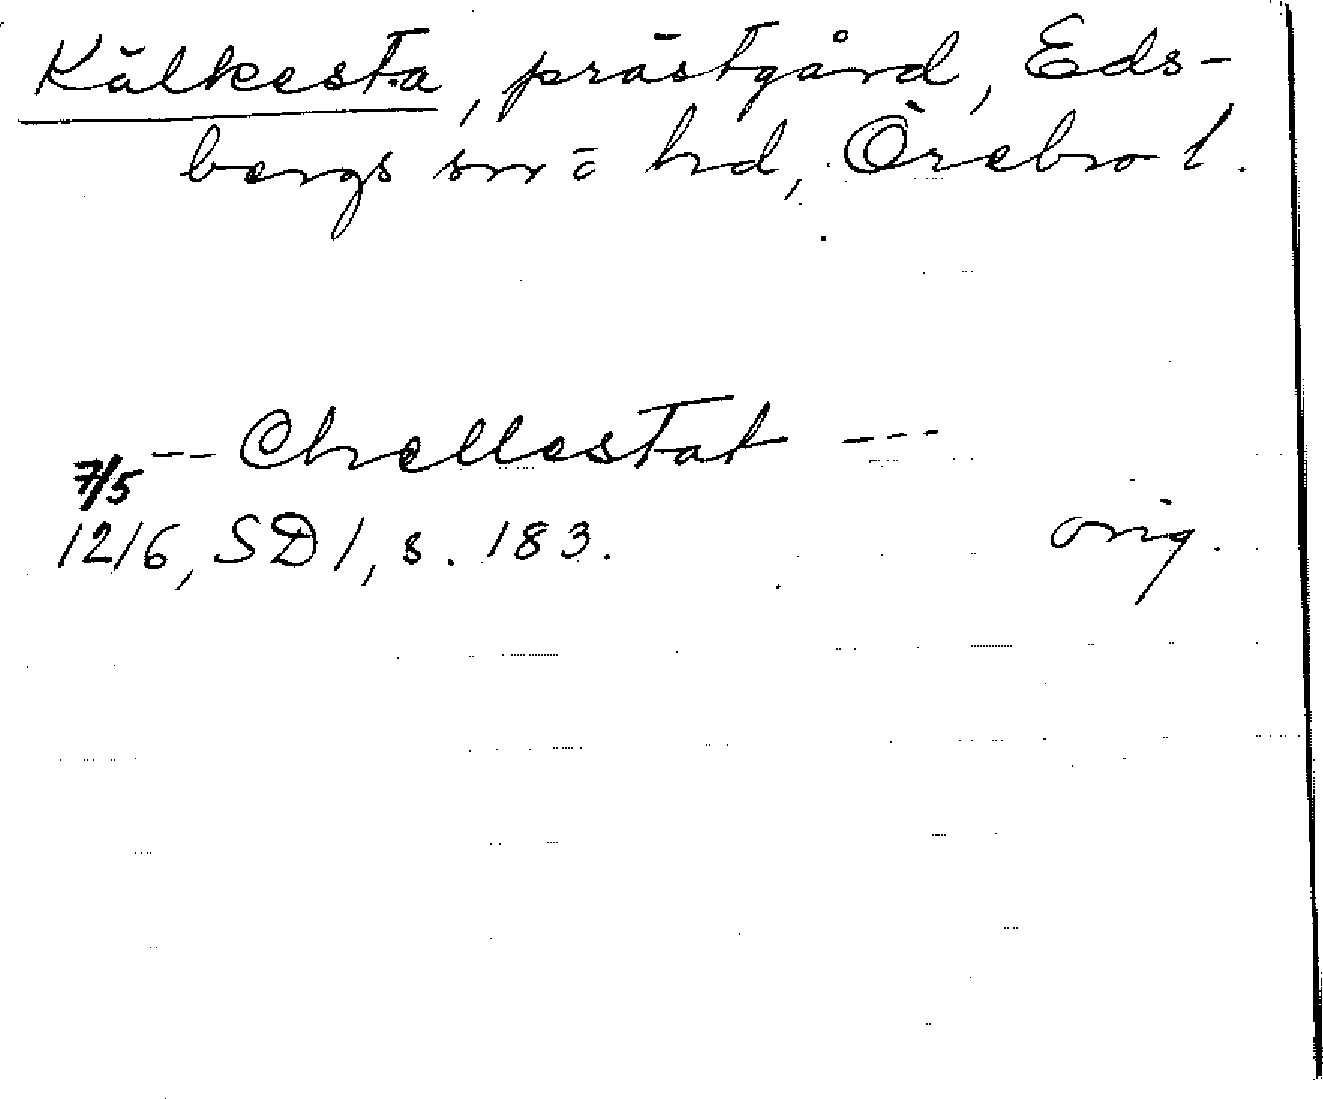 Kälkesta, prästgård, Eds-
bergs sn o hd, Örebro l.
-- Chellestat ---
7/5
1216, SD 1, s. 183. orig.